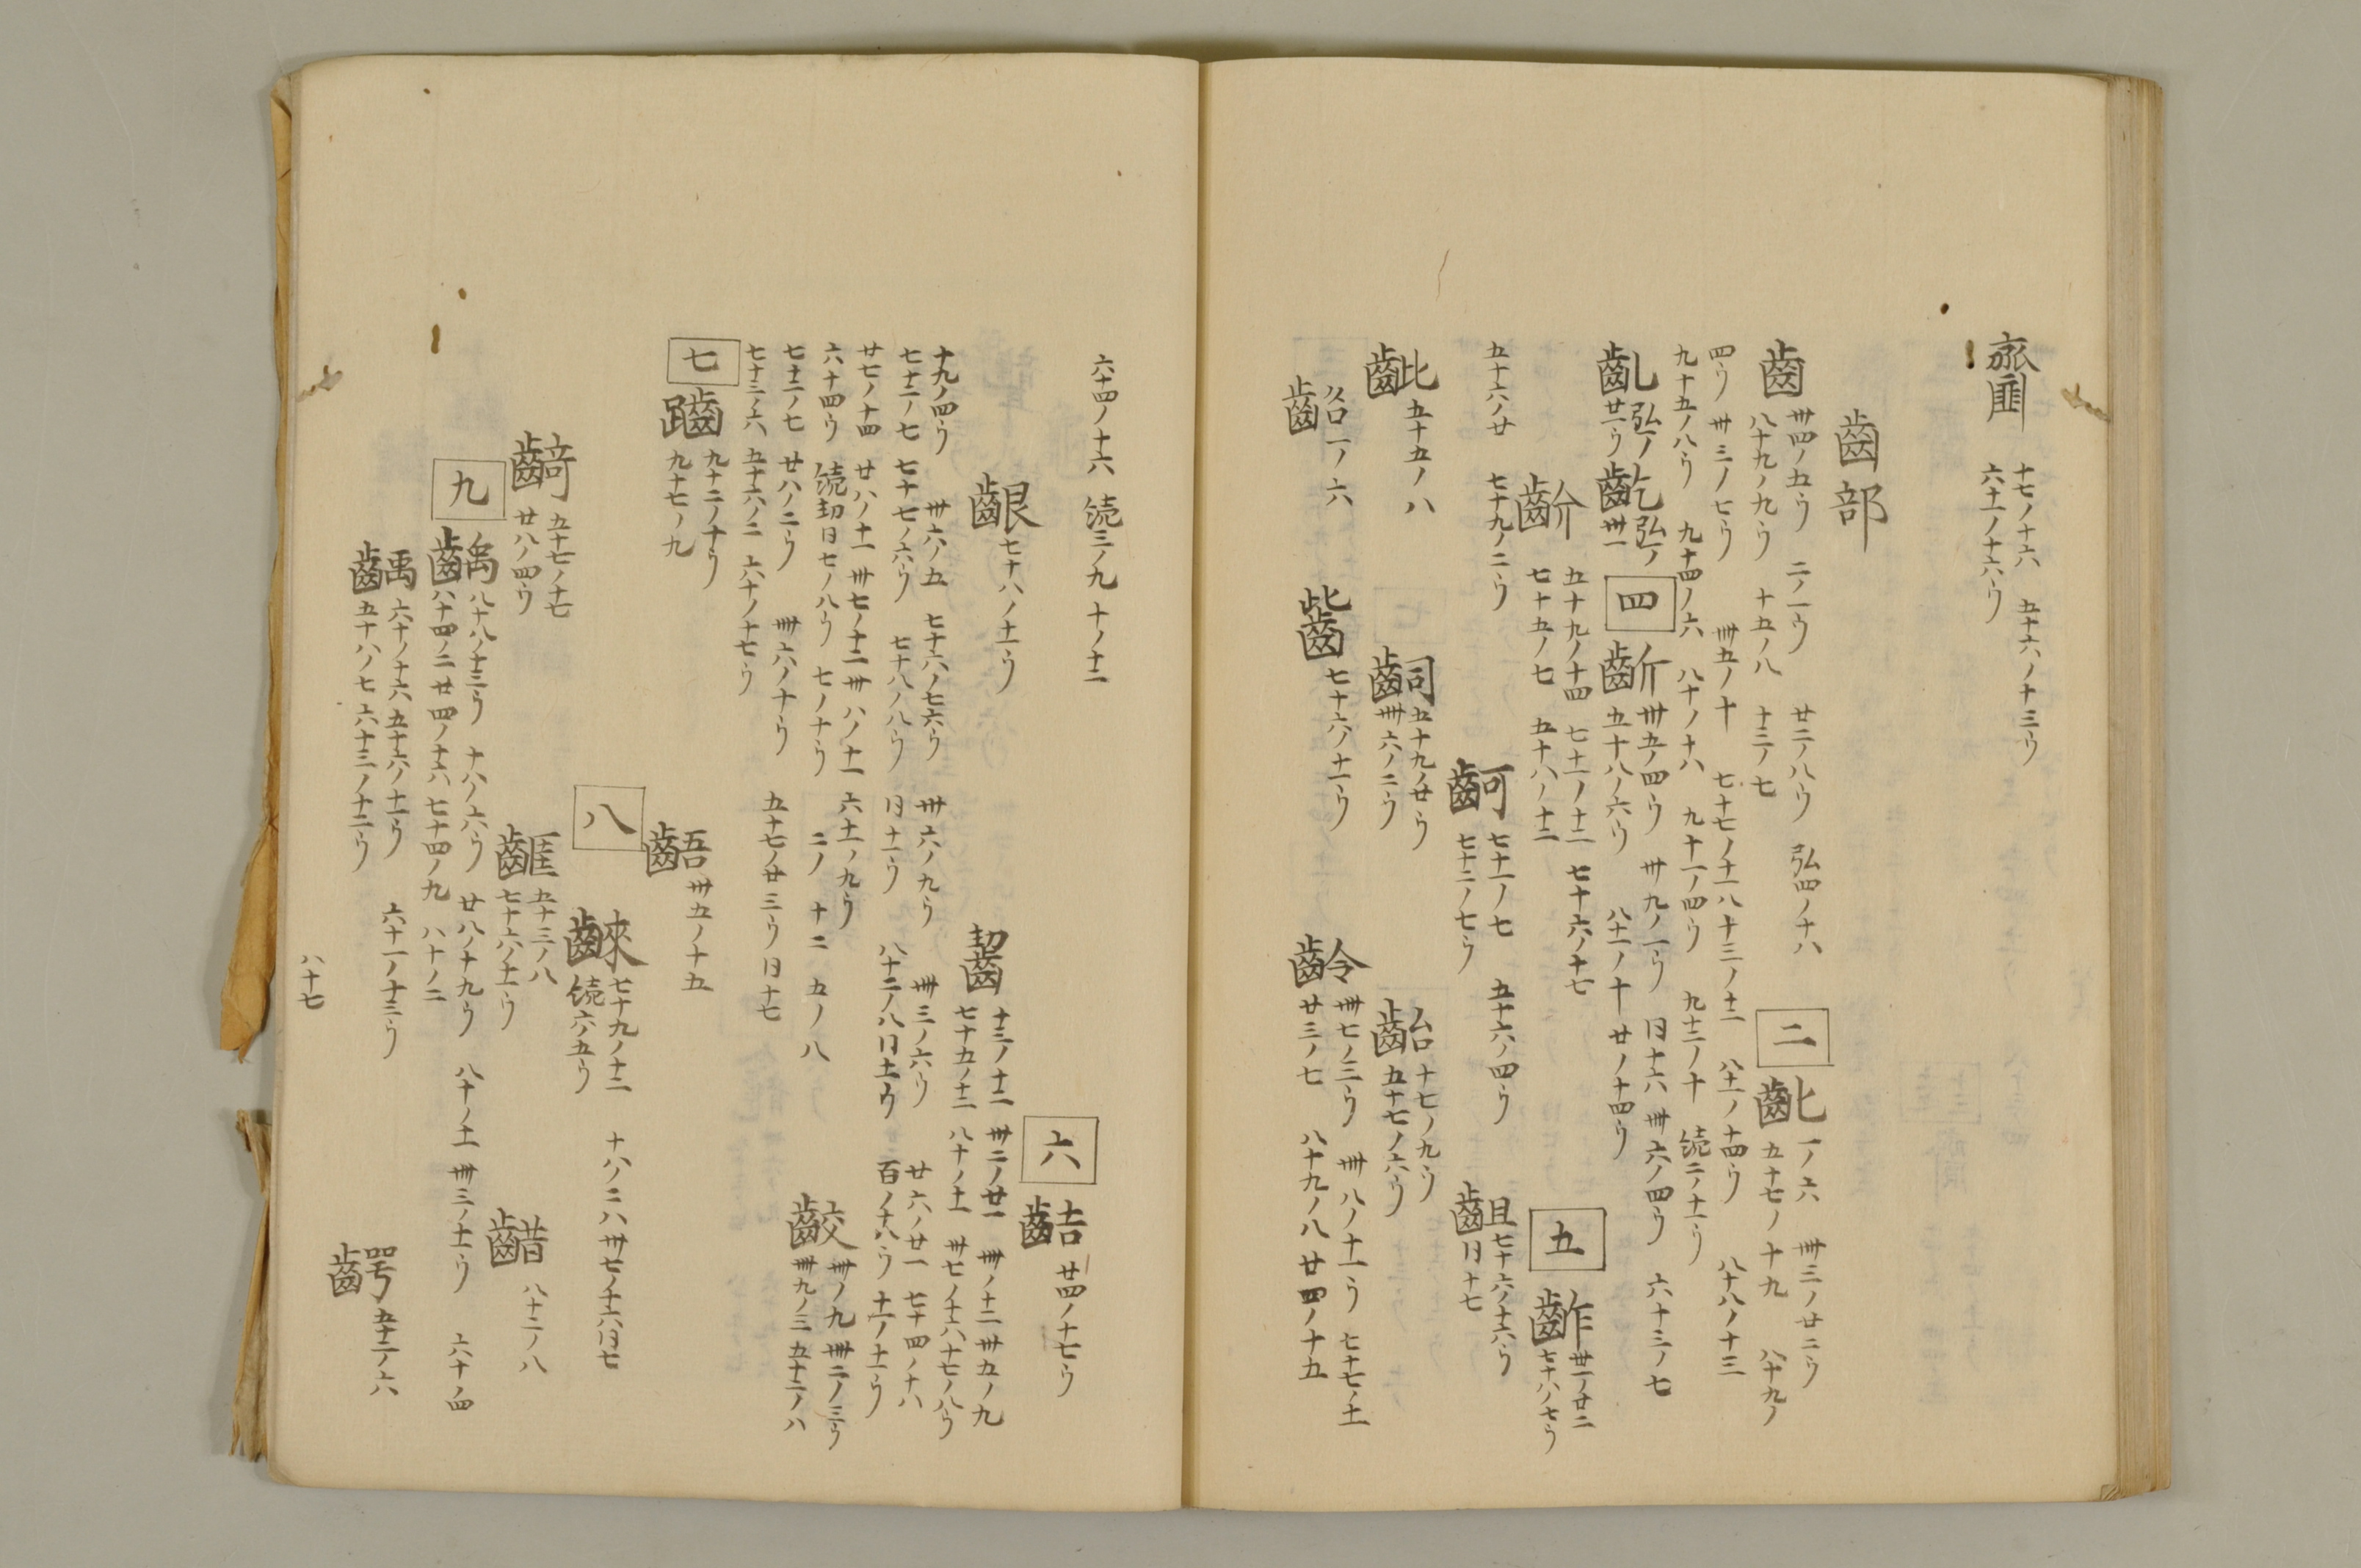 十七ノ十六　五十六ノ十三ウ
六十一ノ十六ウ
齒部
齒　卅四ノ五ウ　二ノ一ウ　廿二ノ八ウ　弘四ノ十八
八十九ノ九ウ　十五ノ八　十三ノ七
二
齔　一ノ六　卌三ノ廿二ウ
五十七ノ十九　八十九ノ
四ウ　卌三ノ七ウ　卌五ノ十　七十七ノ十一　八十三ノ十二　八十一ノ十四ウ　八十八ノ十三
九十五ノ八ウ　九十四ノ六　八十ノ十八　九十一ノ四ウ　九十三ノ十　続二ノ十一ウ
弘一ノ
廿一ウ
齕　弘一ノ
卌一
四
齗　卅五ノ四ウ　卅九ノ一ウ　日十六　卌六ノ四ウ　六十三ノ七
五十八ノ六ウ　八十一ノ十　廿ノ十四ウ
齘　五十九ノ十四　七十一ノ十二　七十六ノ十七
七十五ノ七　五十八ノ十二
五
齚　卅一ノ廿二
七十八ノ七ウ
五十六ノ廿　七十九ノ二ウ
齣　七十一ノ七　五十六ノ四ウ
七十二ノ七ウ
齟　七十六ノ十六ウ
日十七
五十五ノ八
齝　五十九ノ廿ウ
卌六ノ二ウ
齝　十七ノ九ウ
五十七ノ六ウ
齠　一ノ六
齜　七十六ノ十一ウ
齡　卌七ノ三ウ　卌八ノ十一ウ　七十七ノ十一
廿三ノ七　八十九ノ八　廿四ノ十五
六十四ノ十六　続三ノ九　十ノ十二
六
齰　廿四ノ十七ウ
齦　七十八ノ十一ウ
齧　十三ノ十二　卌二ノ廿一　卌ノ十二　卅五ノ九
七十五ノ十三　八十ノ十一　卅七ノ十六　八十七ノ八ウ
十九ノ四ウ　卅六ノ五　七十六ノ七六ウ　卌六ノ九ウ　卌三ノ六ウ　廿六ノ廿一　七十四ノ十八
七十二ノ七　七十七ノ六ウ　七十八ノ八ウ　日十一ウ　八十二ノ八　日十一ウ　百ノ十八ウ　十一ノ十一ウ
廿七ノ十四　廿八ノ十一　卌七ノ十二　卌八ノ十一　六十一ノ九ウ
六十四ウ　続刧日七ノ八ウ　七ノ十ウ　二ノ十二　五ノ八
齩　卌ノ九　卌二ノ三ウ
卌九ノ三　五十二ノ八
七十二ノ七　廿八ノ二ウ　卌六ノ十ウ　五十七ノ廿三ウ　日十七
七十三ノ六　五十六ノ二　六十ノ十七ウ
七
九十二ノ十ウ
九十七ノ九
齬　卅五ノ十五
八
七十九ノ十二　十八ノ二　八卅七ノ十六　日七
続六ノ五ウ
齮　五十七ノ十七
廿八ノ四ウ
五十三ノ八
七十六ノ十一ウ
齰　八十二ノ八
九
齲　八十八ノ十三ウ　十八ノ六ウ　廿八ノ十九ウ　八十ノ十一　卌三ノ十一ウ　六十ノ四
八十四ノ二　廿四ノ十六　七十四ノ九　八十ノ二
齲　六十ノ十六　五十六ノ十一ウ　六十一ノ十三ウ
五十八ノ七　六十三ノ十二ウ
齶　五十二ノ六
八十七